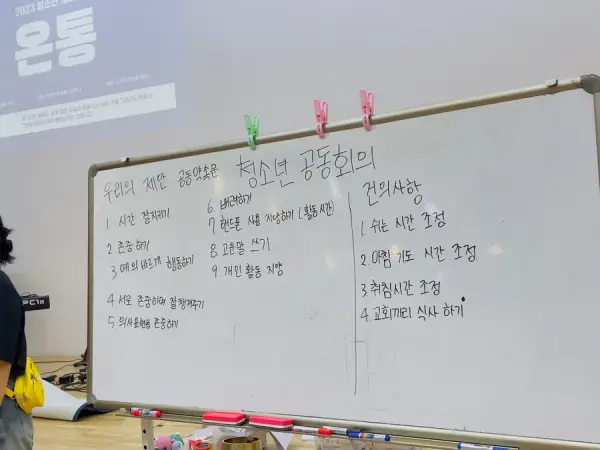 2023 청소년
온통
우리의 제안 공동약속문 청소년 공동회의
1 시간 잘지키기
2 존중하기
3 예의 바르게 행동하기
4 서로 존중하며 잘 챙겨주기
5 의사표현 존중하기
6. 배려하기
7 핸드폰 사용 지양하기 (활동시간)
8. 고운말 쓰기
9. 개인 활동 지양
건의사항
1. 쉬는 시간 조정
2. 아침 기도 시간 조정
3. 취침시간 조정
4. 교회끼리 식사 하기
PC1x